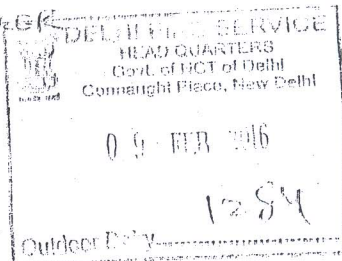 DELHI FIRE SERVICE
HEAD QUARTERS
Govt. of NCT of Delhi
Connaught Place, New Delhi
09 FEB 2016
1284
Outdoor Dairy